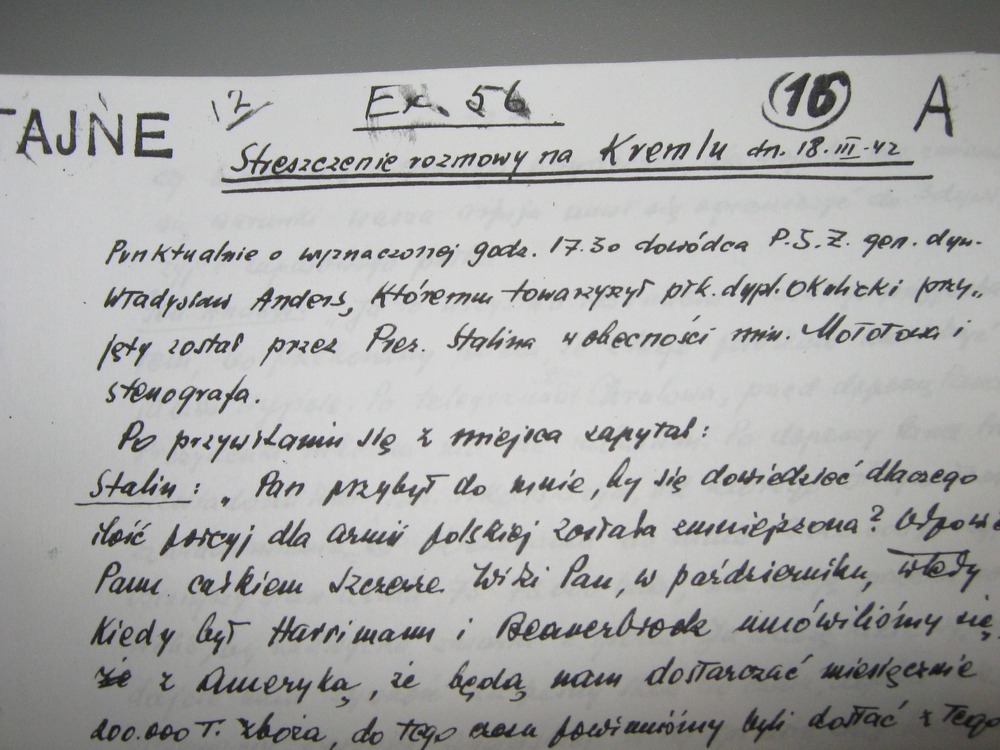 TAJNE 12 Ex. 56 16 A
Streszczenie rozmowy na Kremlu dn. 18.III.42
Punktualnie o wyznaczonej godz. 17.30 dowódca P.S.Z. gen. dyw.
Władysław Anders, któremu towarzyszył płk. dypl. Okulicki przy„
jęty został przez Prez. Stalina w obecności min. Mołotowa i
stenografa.
Po przywitaniu się z miejsca zapytał:
Stalin: „Pan przybył do mnie, by się dowiedzieć dlaczego
ilość porcyj dla armii polskiej została zmniejszona? Odpowie
Panu całkiem szczerze. Widzi Pan, w październiku, wtedy
kiedy był Harrimann i Beaverbrook umówiliśmy się
że z Ameryką, że będą nam dostarczać miesięcznie
200.000 T. zboża, do tego czasu powinniśmy byli dostać z tego